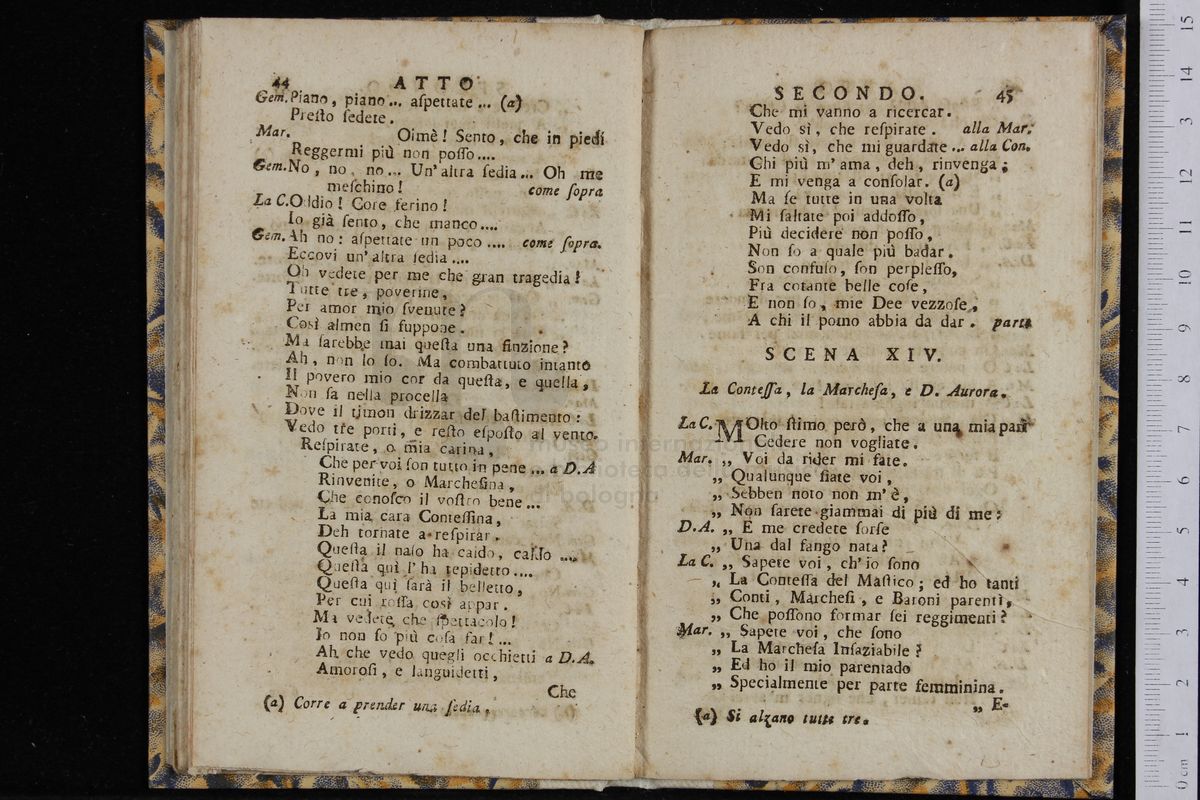 44 ATTO
Gem. Piano, piano... aſpettate... (a)
Preſto ſedete.
Mar. Oimè! Sento, che in piedi
Reggermi più non poſſo....
Gem. No, no, no... Un'altra ſedia... Oh me
meſchino! come ſopra
La C. Oddio! Core ferino!
Io già ſento, che manco....
Gem. Ah no: aſpettate un poco.... come ſopra.
Eccovi un'altra ſedia....
Oh vedete per me che gran tragedia!
Tutte tre, poverine,
Per amor mio ſvenute?
Così almen ſi ſuppone.
Ma ſarebbe mai queſta una finzione?
Ah, non lo ſo. Ma combattuto intanto
Il povero mio cor da queſta, e quella,
Non ſa nella procella
Dove il timon drizzar del baſtimento:
Vedo tre porti, e reſto eſpoſto al vento.
Reſpirate, o mia carina,
Che per voi ſon tutto in pene... a D.A
Rinvenite, o Marcheſina,
Che conoſco il voſtro bene...
La mia cara Conteſſina,
Deh tornate a reſpirar.
Queſta il naſo ha caido, caldo....
Queſta quì l'ha tepidetto....
Queſta quì ſarà il belletto,
Per cui roſſa così appar.
Ma vedete che ſpettacolo!
Io non ſo più coſa far!...
Ah che vedo quegli occhietti a D.A.
Amoroſi, e languidetti,
Che
(a) Corre a prender una ſedia.
SECONDO. 45
Che mi vanno a ricercar.
Vedo sì, che reſpirate. alla Mar.
Vedo sì, che mi guardate... alla Con.
Chi più m'ama, deh, rinvenga;
E mi venga a conſolar. (a)
Ma ſe tutte in una volta
Mi ſaltate poi addoſſo,
Più decidere non poſſo,
Non ſo a quale più badar.
Son confuſo, ſon perpleſſo,
Fra cotante belle coſe,
E non ſo, mie Dee vezzoſe,
A chi il pomo abbia da dar. parte
SCENA XIV.
La Conteſſa, la Marcheſa, e D. Aurora.
La C. MOlto ſtimo però, che a una mia pari
Cedere non vogliate.
Mar. „ Voi da rider mi fate.
„ Qualunque ſiate voi,
„ Sebben noto non m'è,
„ Non ſarete giammai di più di me:
D.A. „ E me credete forſe
„ Una dal fango nata?
La C. „ Sapete voi, ch'io ſono
„ La Conteſſa del Maſtico; ed ho tanti
„ Conti, Marcheſi, e Baroni parenti,
„ Che poſſono formar ſei reggimenti?
Mar. „ Sapete voi, che ſono
„ La Marcheſa Inſaziabile?
„ Ed ho il mio parentado
„ Specialmente per parte femminina.
„ E-
(a) Si alzano tutte tre.